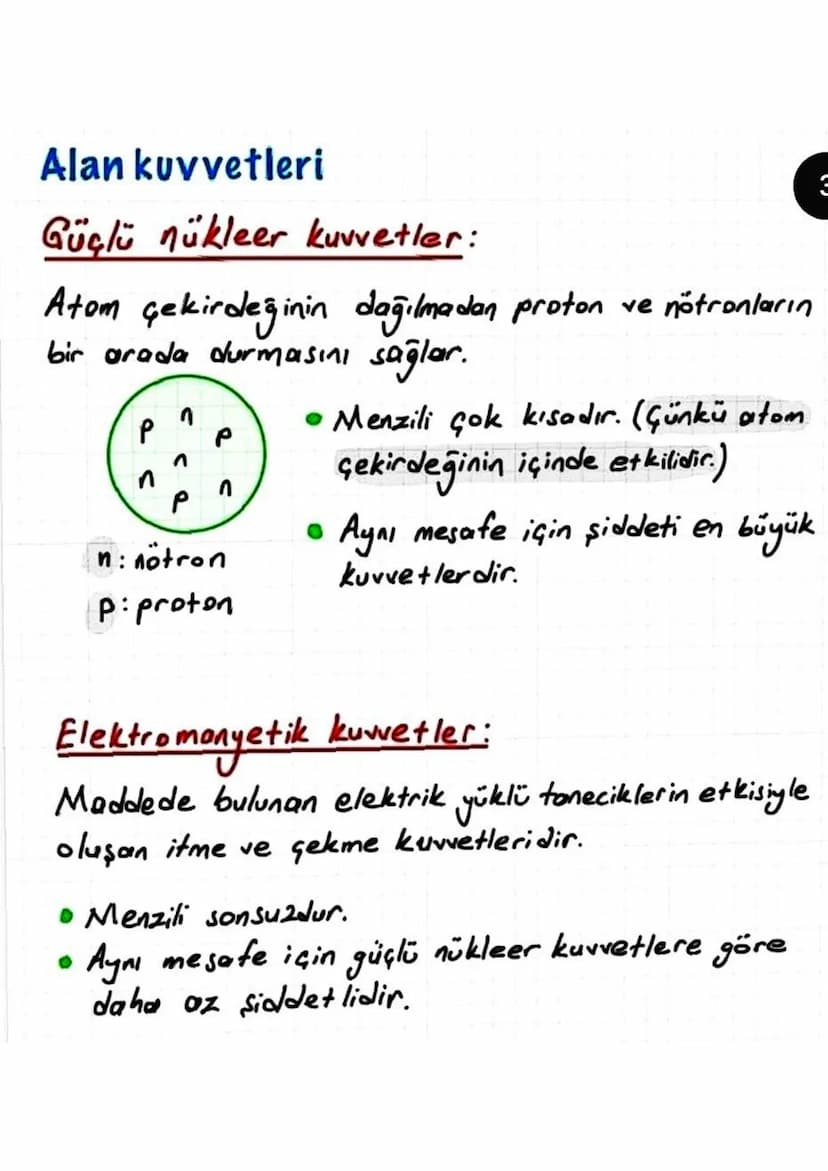 Alan kuvvetleri
3
Güçlü nükleer kuvvetler:
Atom çekirdeğinin dağılmadan proton ve nötronların
bir arada durmasını sağlar.
p n p
n n n
p
n: nötron
p: proton
• Menzili çok kısadır. (Çünkü atom
çekirdeğinin içinde etkilidir.)
• Aynı mesafe için şiddeti en büyük
kuvvetlerdir.
Elektromanyetik kuvvetler:
Maddede bulunan elektrik yüklü taneciklerin etkisiyle
oluşan itme ve çekme kuvvetleridir.
• Menzili sonsuzdur.
• Aynı mesafe için güçlü nükleer kuvvetlere göre
daha az şiddetlidir.